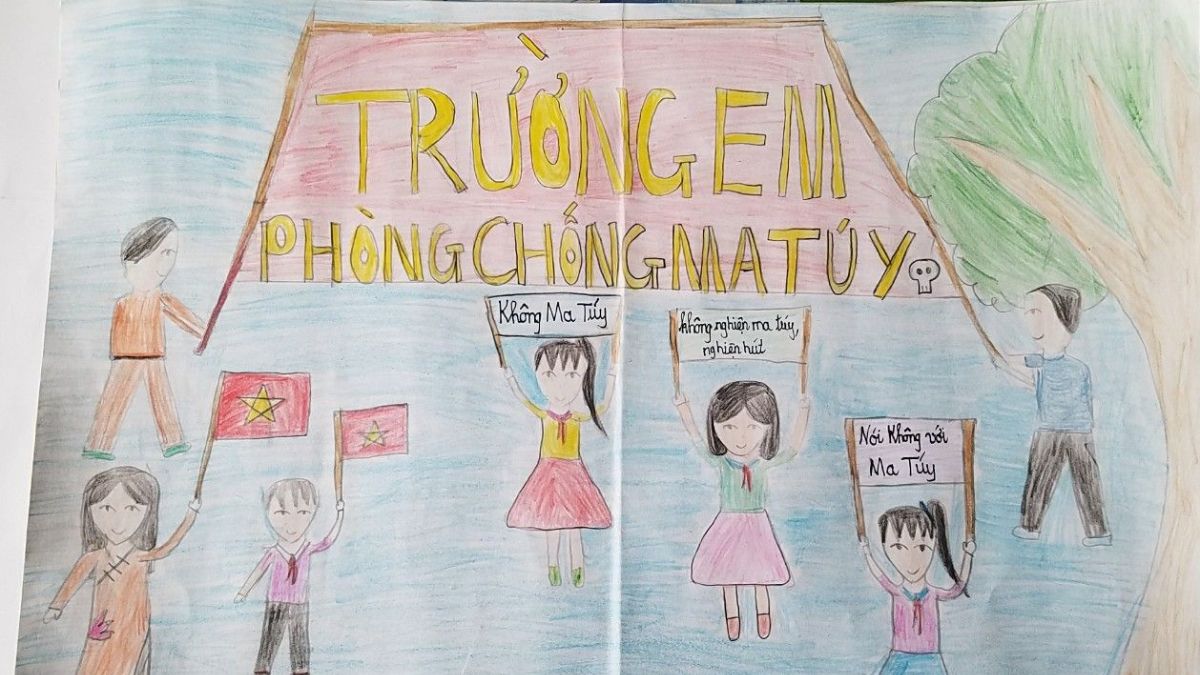 TRƯỜNG EM
PHÒNG CHỐNG MA TÚY
Không Ma Túy
không nghiện ma túy,
nghiện hút
Nói Không với
Ma Túy